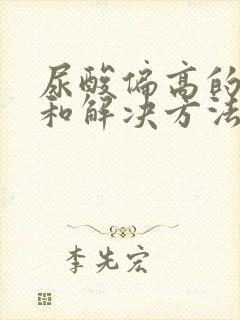 尿酸偏高的
和解决方法
李先宏